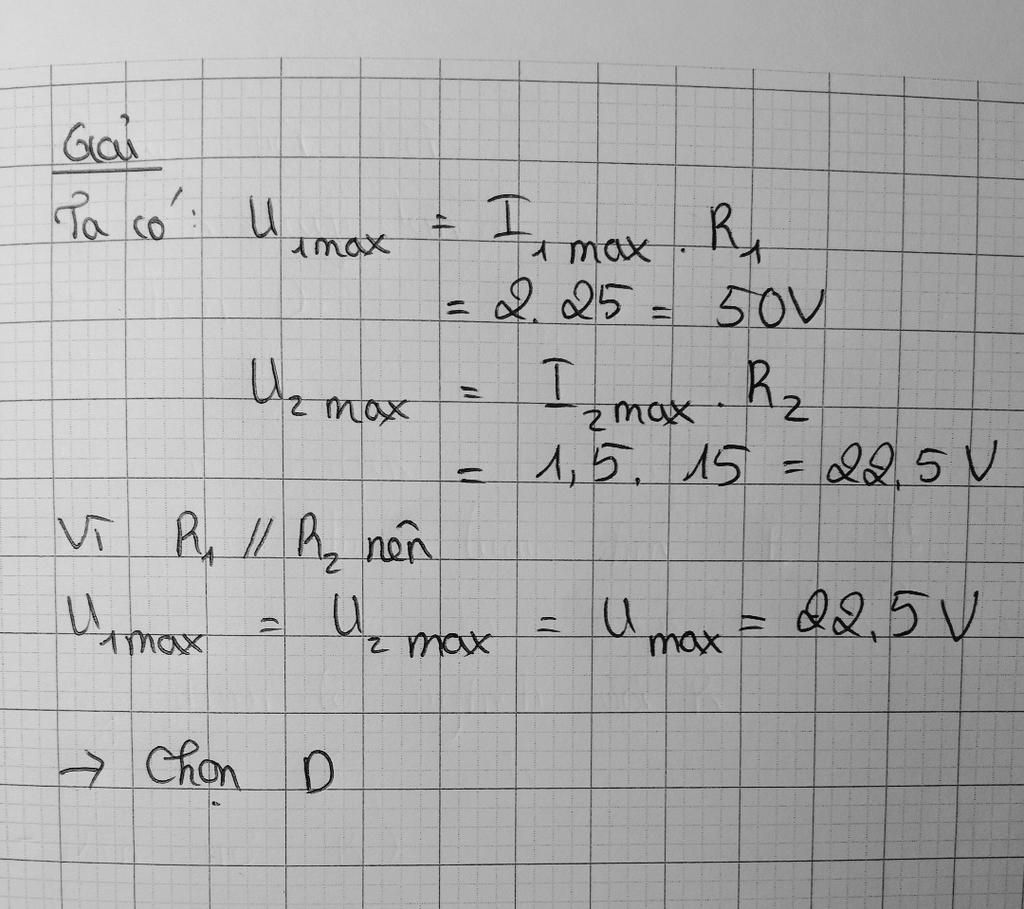 Giải
Ta có: U1max = I1 max . R1
= 2. 25 = 50V
U2 max = I2max . R2
= 1,5. 15 = 22,5 V
Vì R1 // R2 nên
U1max = U2 max = Umax = 22,5 V
→ Chọn D